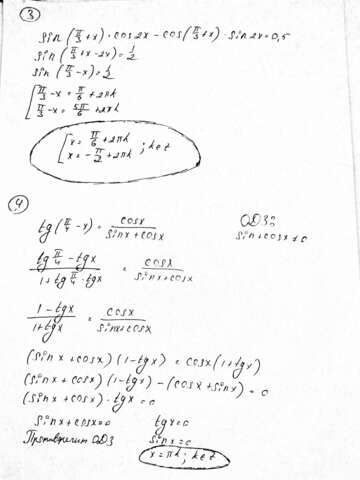 ③
sin(π/3+x)·cos2x - cos(π/3+x)·sin2x = 0,5
sin(π/3+x-2x) = 1/2
sin(π/3-x) = 1/2
[π/3-x = π/6+2πk
π/3-x = 5π/6+2πk
[x = π/6+2πk
x = -π/2+2πk ; k∈Z
④
tg(π/4-x) = cosx/(sinx+cosx) ОДЗ:
sinx+cosx≠0
(tgπ/4-tgx)/(1+tgπ/4·tgx) = cosx/(sinx+cosx)
(1-tgx)/(1+tgx) = cosx/(sinx+cosx)
(sinx+cosx)(1-tgx) = cosx(1+tgx)
(sinx+cosx)(1-tgx)-(cosx+sinx) = 0
(sinx+cosx)·tgx=0
sinx+cosx=0 tgx=0
Противоречит ОДЗ sinx=0
x=πk; k∈Z